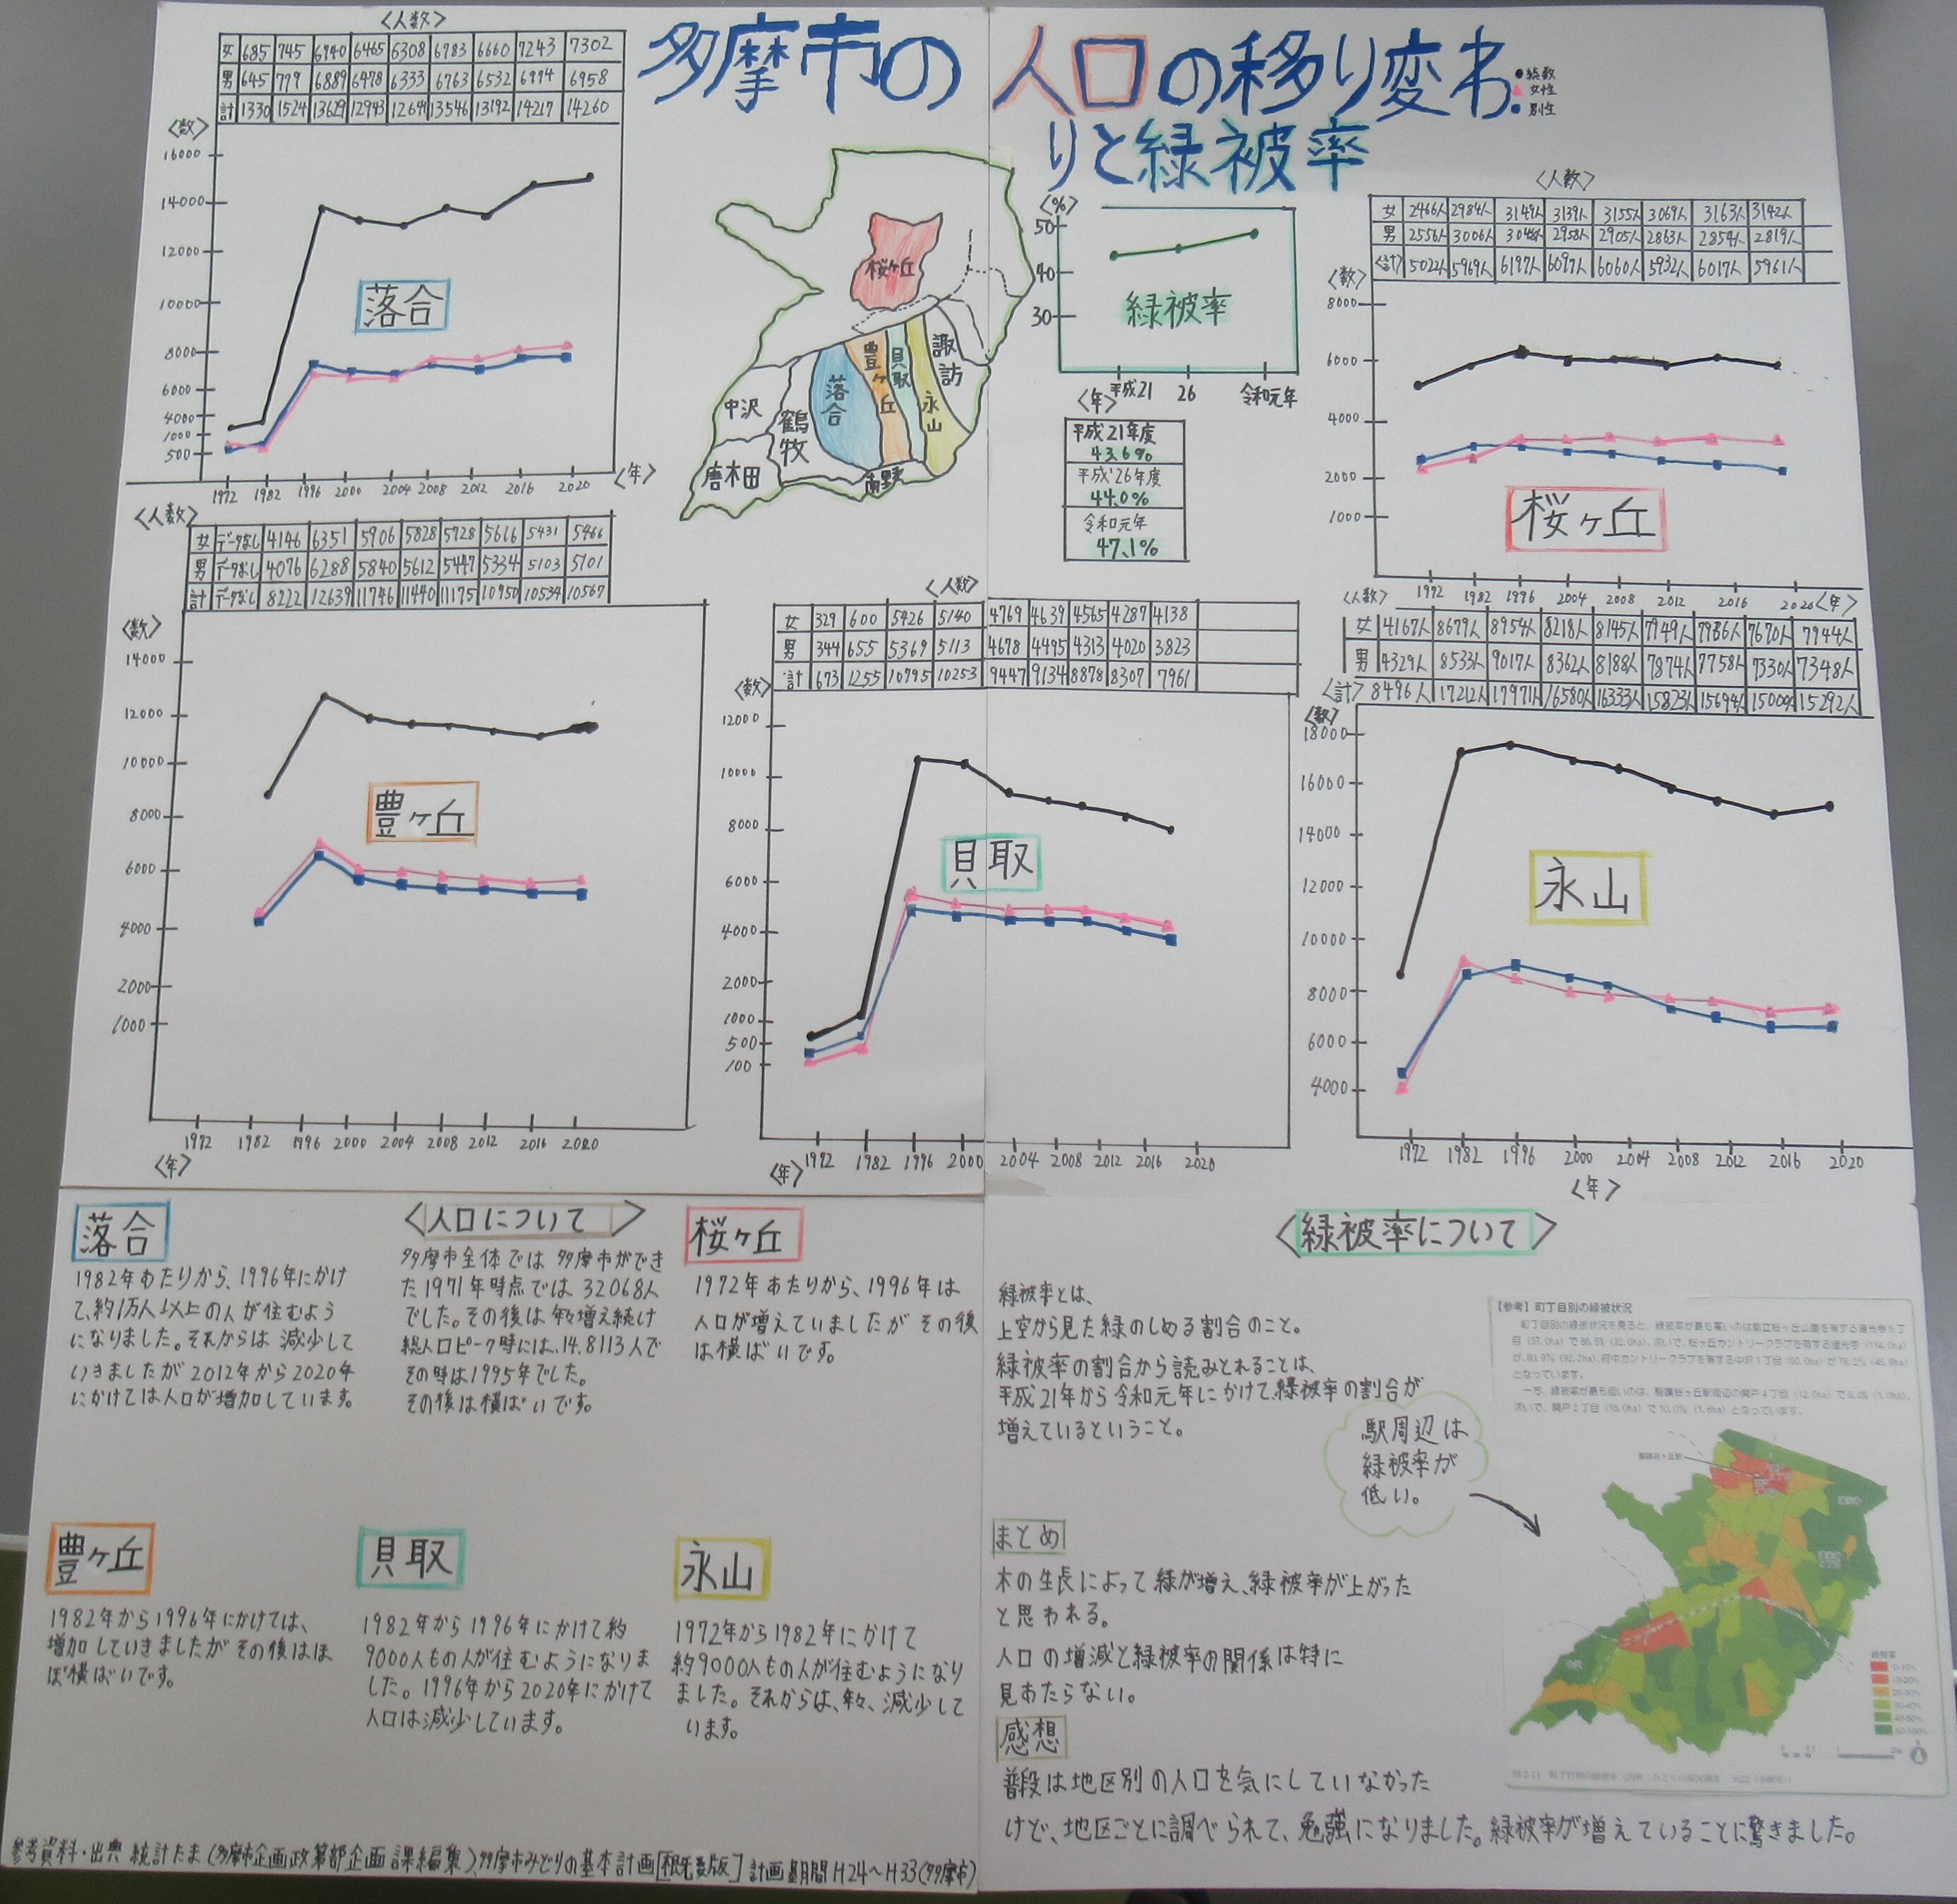 多摩市の人口の移り変わ
りと緑被率
●総数
▲女性
■男性
〈人数〉
女 685 745 6740 6465 6308 6783 6660 7243 7302
男 645 779 6889 6478 6333 6763 6532 6974 6958
計 1330 1524 13629 12943 12641 13546 13192 14217 14260
〈数〉
16000
14000
12000
10000
8000
6000
4000
1000
500
落合
1972 1982 1996 2000 2004 2008 2012 2016 2020 〈年〉
桜ヶ丘
諏訪
豊ヶ丘
貝取
永山
落合
中沢
鶴牧
唐木田
南野
〈%〉
50
40
30
緑被率
〈年〉 平成21 26 令和元年
平成21年度
43.6%
平成26年度
44.0%
令和元年
47.1%
〈人数〉
女 2466人 2984人 3149人 3139人 3155人 3069人 3163人 3142人
男 2556人 3006人 3048人 2958人 2905人 2863人 2854人 2819人
〈計〉 5022人 5969人 6197人 6097人 6060人 5932人 6017人 5961人
〈数〉
8000
6000
4000
2000
1000
桜ヶ丘
1972 1982 1996 2004 2008 2012 2016 2020 〈年〉
〈人数〉
女 データなし 4146 6351 5906 5828 5728 5616 5431 5466
男 データなし 4076 6288 5840 5612 5447 5334 5103 5101
計 データなし 8222 12639 11746 11440 11175 10950 10534 10567
〈数〉
14000
12000
10000
8000
6000
4000
2000
1000
豊ヶ丘
1972 1982 1996 2000 2004 2008 2012 2016 2020
〈年〉
〈人数〉
女 329 600 5426 5140 4769 4639 4565 4287 4138
男 344 655 5369 5113 4678 4495 4313 4020 3823
計 673 1255 10795 10253 9447 9134 8878 8307 7961
〈数〉
12000
10000
8000
6000
4000
2000
1000
500
100
貝取
〈年〉 1972 1982 1996 2000 2004 2008 2012 2016 2020
〈人数〉
女 4167人 8679人 8954人 8218人 8145人 7949人 7936人 7670人 7944人
男 4329人 8533人 9017人 8362人 8188人 7874人 7758人 7330人 7348人
〈計〉 8496人 17212人 17971人 16580人 16333人 15823人 15694人 15000人 15292人
〈数〉
18000
16000
14000
12000
10000
8000
6000
4000
永山
1972 1982 1996 2000 2004 2008 2012 2016 2020
〈年〉
落合
1982年あたりから、1996年にかけ
て、約1万人以上の人が住むよう
になりました。それからは減少して
いきましたが2012年から2020年
にかけては人口が増加しています。
〈人口について〉
多摩市全体では多摩市ができ
た1971年時点では32068人
でした。その後は年々増え続け
総人口ピーク時には、14.8113人で
その時は1995年でした。
その後は横ばいです。
桜ヶ丘
1972年あたりから、1996年は
人口が増えていましたがその後
は横ばいです。
豊ヶ丘
1982年から1996年にかけては、
増加していきましたがその後はほ
ぼ横ばいです。
貝取
1982年から1996年にかけて約
9000人もの人が住むようになりま
した。1996年から2020年にかけて
人口は減少しています。
永山
1972年から1982年にかけて
約9000人もの人が住むようになり
ました。それからは、年々、減少して
います。
参考資料・出典 統計たま(多摩市企画政策部企画課編集)、多摩市みどりの基本計画[概要版]計画期間H24～H33(多摩市)
〈緑被率について〉
緑被率とは、
上空から見た緑のしめる割合のこと。
緑被率の割合から読みとれることは、
平成21年から令和元年にかけて、緑被率の割合が
増えているということ。
駅周辺は
緑被率が
低い。
まとめ
木の生長によって緑が増え、緑被率が上がった
と思われる。
人口の増減と緑被率の関係は特に
見あたらない。
感想
普段は地区別の人口を気にしていなかった
けど、地区ごとに調べられて、勉強になりました。緑被率が増えていることに驚きました。
【参考】町丁目別の緑被状況